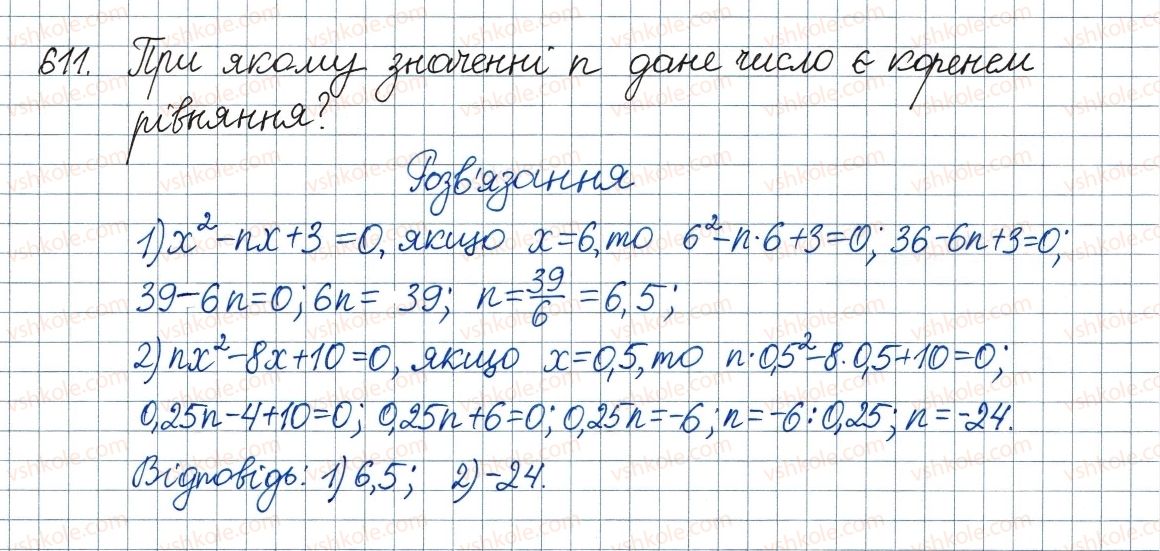 611. При якому значенні n дане число є коренем
рівняння?
Розв'язання
1) x²-nx+3=0, якщо x=6, то 6²-n·6+3=0; 36-6n+3=0;
39-6n=0; 6n= 39; n=39/6=6,5;
2) nx²-8x+10=0, якщо x=0,5, то n·0,5²-8·0,5+10=0;
0,25n-4+10=0; 0,25n+6=0; 0,25n=-6; n=-6:0,25; n=-24.
Відповідь: 1) 6,5; 2) -24.